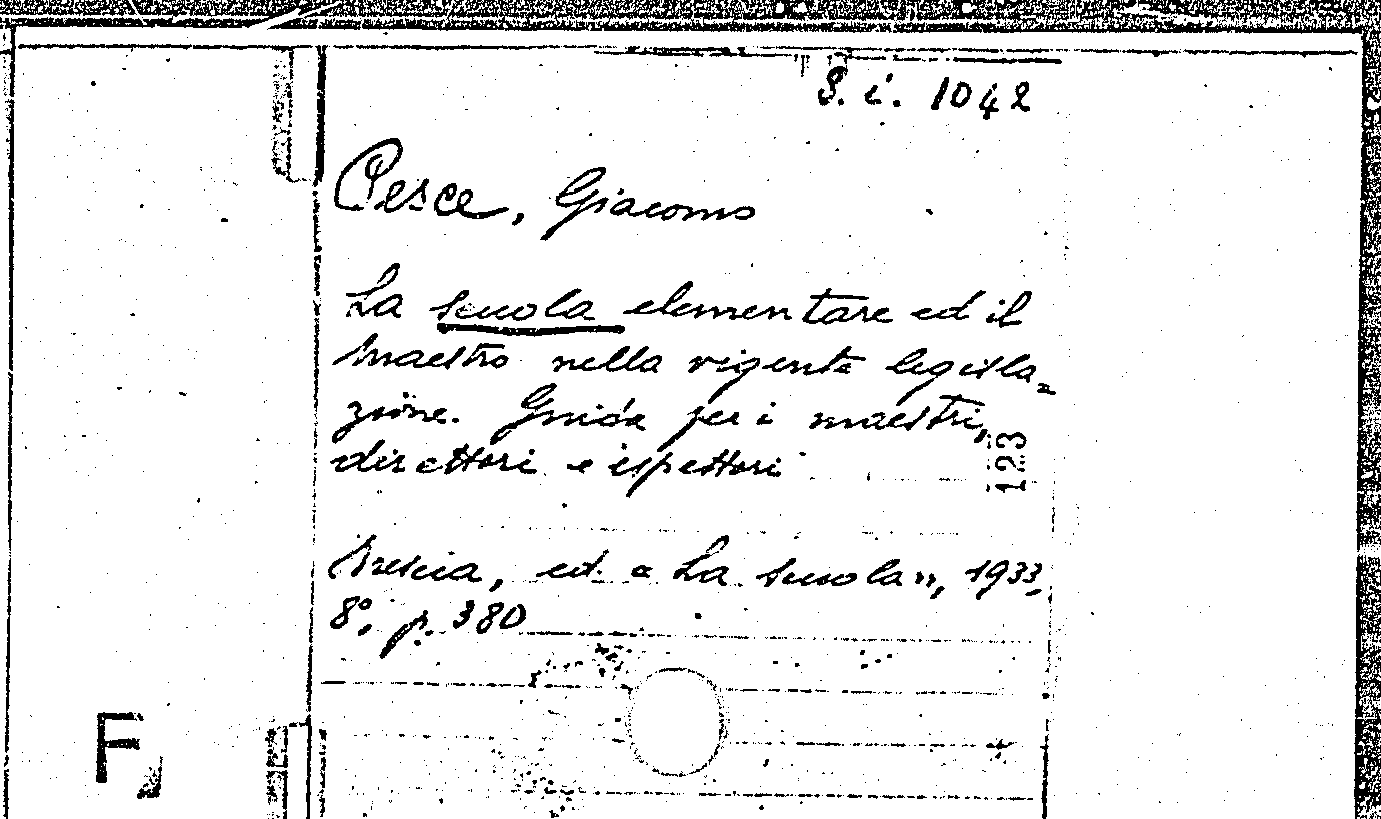 S. i. 1042
Pesce, Giacomo
La scuola elementare ed il
maestro nella vigente legisla=
zione. Guida per i maestri,
direttori e ispettori
123
Brescia, ed. « La Scuola », 1933,
8°, p. 380
F